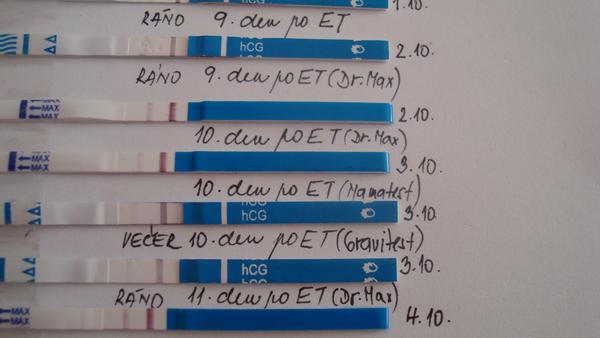 1.10.
RÁNO 9. den po ET
hCG
2.10.
RÁNO 9. den po ET (Dr.Max)
MAX
MAX
2.10.
10. den po ET (Dr.Max)
MAX
3.10.
10. den po ET (Mamatest)
hCG
3.10.
VEČER 10. den po ET (Gravitest)
hCG
3.10.
RÁNO 11. den po ET (Dr.Max)
MAX
4.10.